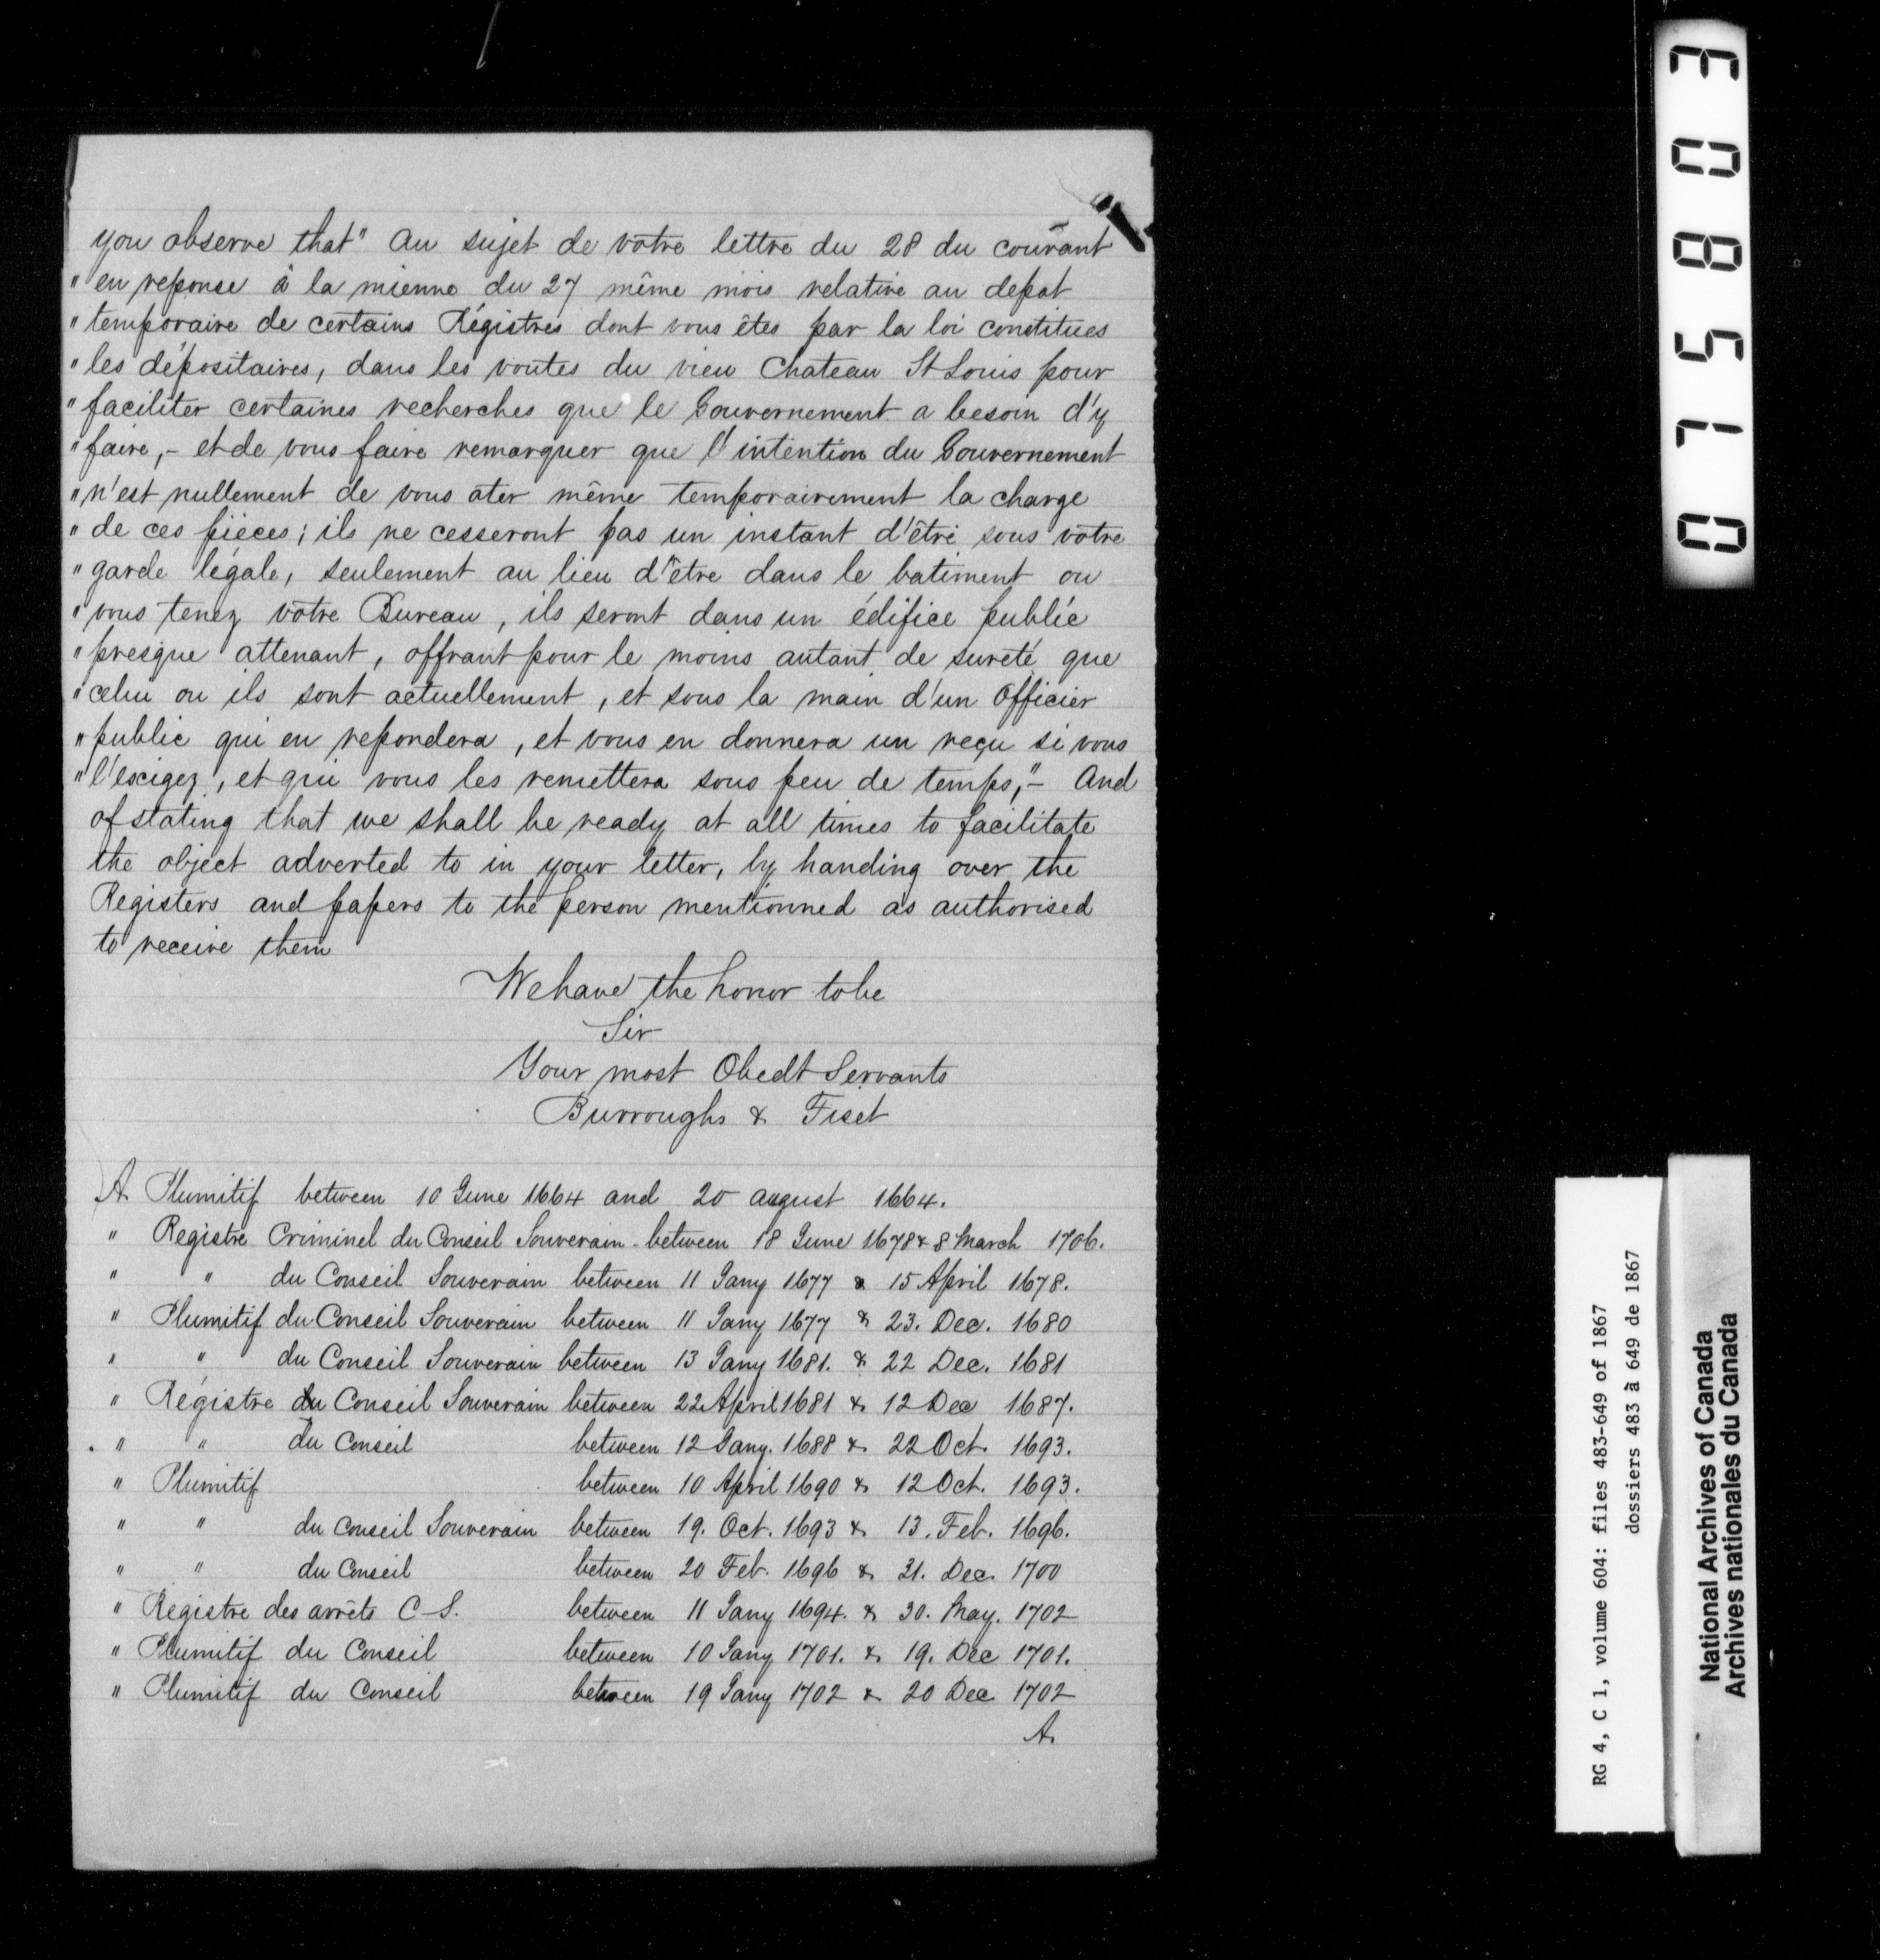 you observe that " au sujet de votre lettre du 28 du courant
" en reponse à la mienne du 27 même mois relative au depot
" temporaire de certains Régistres dont vous êtes par la loi constitues
" les dépositaires, dans les voutes du vieu Chateau St Louis pour
" faciliter certaines recherches que le Gouvernement a besoin d'y
" faire, - et de vous faire remarquer que l'intention du Gouvernement
" n'est nullement de vous ater même temporairement la charge
" de ces pièces; ils ne cesseront pas un instant d'être sous votre
" garde légale, seulement au lieu d'être dans le batiment ou
" vous tenez votre Bureau, ils seront dans un édifice public
" presque attenant, offrant pour le moins autant de sureté que
" celui ou ils sont actuellement, et sous la main d'un Officier
" public qui en repondera, et vous en donnera un reçu si vous
" l'escigez, et qui vous les remettera sous peu de temps," - And
of stating that we shall be ready at all times to facilitate
the object adverted to in your letter, by handing over the
Registers and papers to the person mentionned as authorised
to receive them
We have the honor to be
Sir
Your most Obedt Servants
Burroughs & Fiset
A Plumitif between 10 June 1664 and 20 august 1664.
" Registre Criminel du Conseil Souverain - between 18 June 1678 & 8 March 1706.
" " du Conseil Souverain between 11 Jany 1677 & 15 April 1678.
" Plumitif du Conseil Souverain between 11 Jany 1677 & 23. Dec. 1680
" " du Conseil Souverain between 13 Jany 1681. & 22 Dec. 1681
" Régistre du Conseil Souverain between 22 April 1681 & 12 Dec 1687.
" " du Conseil between 12 Jany. 1688 & 22 Oct. 1693.
" Plumitif between 10 April 1690 & 12 Oct. 1693.
" " du Conseil Souverain between 19. Oct. 1693 & 13. Feb. 1696.
" " du Conseil between 20 Feb. 1696 & 31. Dec. 1700
" Régistre des arrêts C-S. between 11 Jany 1694. & 30. May. 1702
" Plumitif du Conseil between 10 Jany 1701. & 19. Dec 1701.
" Plumitif du Conseil between 19 Jany 1702 & 20 Dec. 1702
A.
075803
RG 4, C 1, volume 604: files 483-649 of 1867
dossiers 483 à 649 de 1867
National Archives of Canada
Archives nationales du Canada